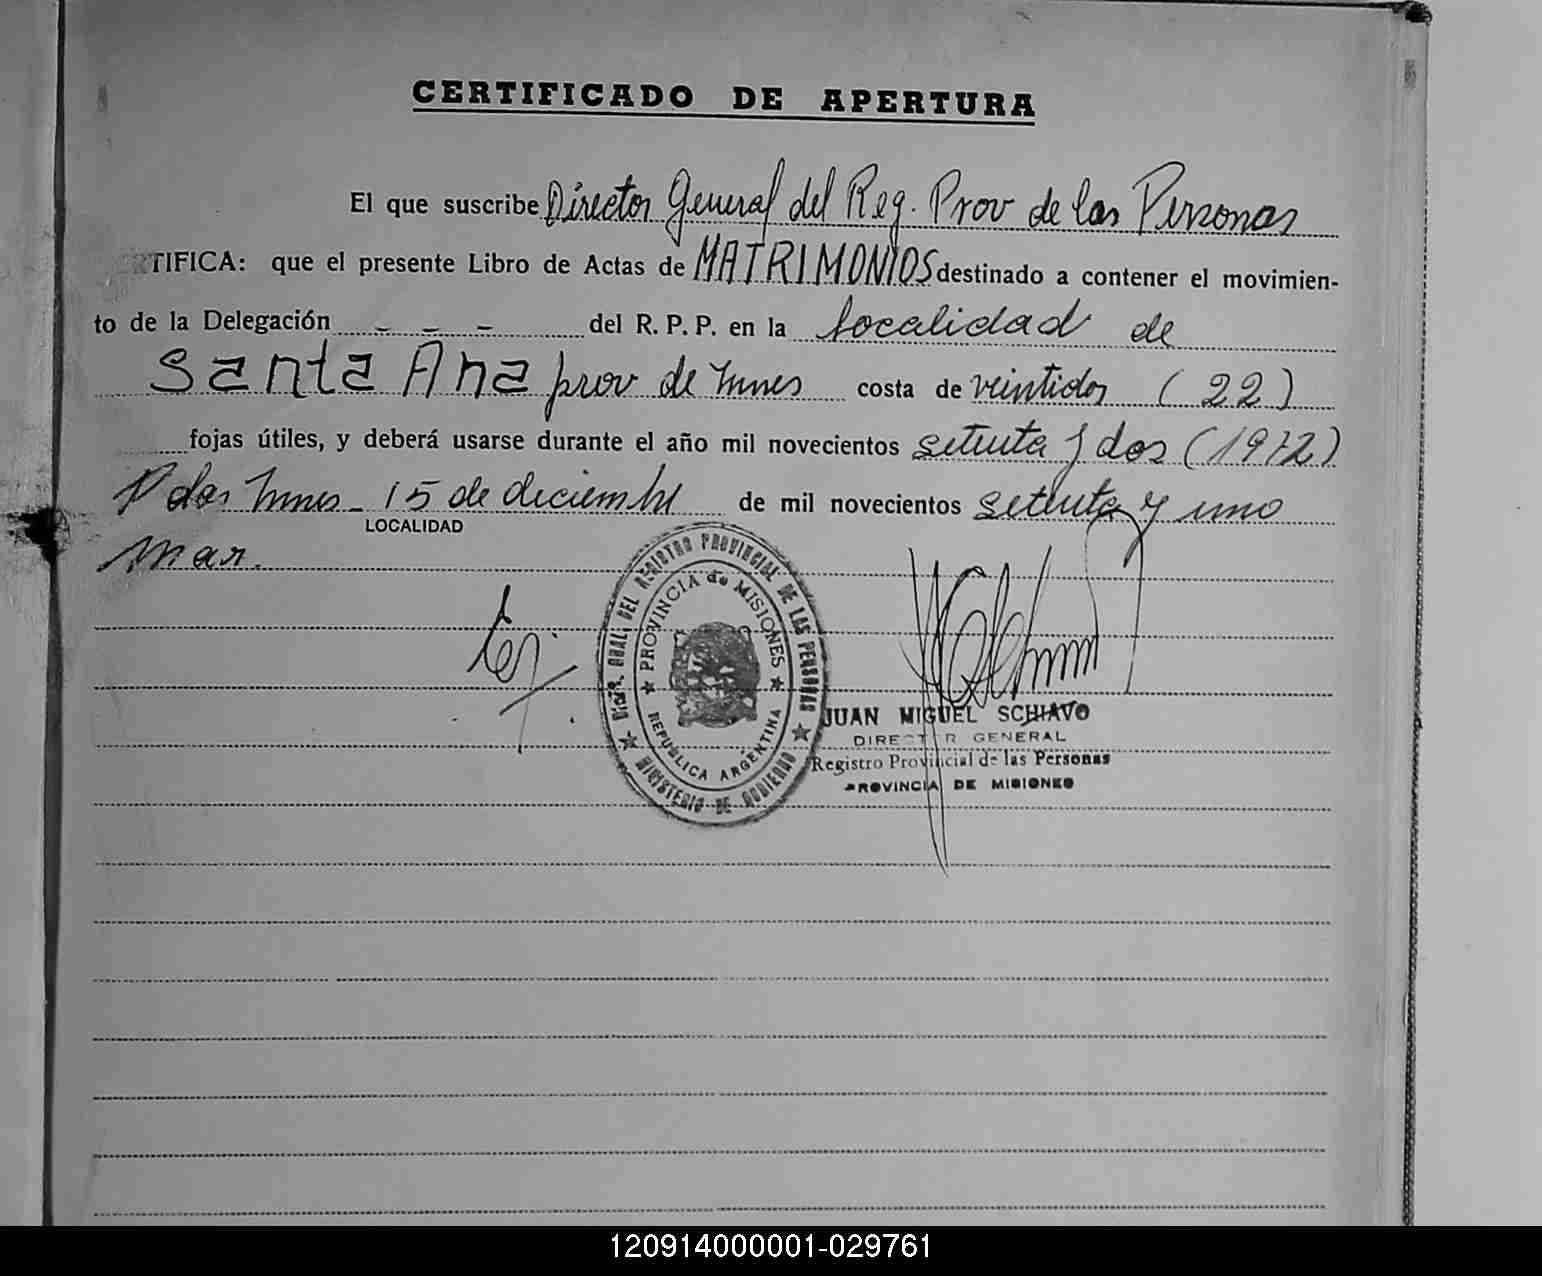 CERTIFICADO DE APERTURA
El que suscribe Director General del Reg. Prov de las Personas
TIFICA: que el presente Libro de Actas de MATRIMONIOS destinado a contener el movimien-
to de la Delegación - - - del R. P. P. en la localidad de
Santa Ana prov de Mnes costa de veintidos (22)
fojas útiles, y deberá usarse durante el año mil novecientos setenta y dos (1972)
Pdas Mnes - 15 de diciembre de mil novecientos setenta y uno
LOCALIDAD
DEL REGISTRO PROVINCIAL DE LAS PERSONAS
PROVINCIA de MISIONES
REPUBLICA ARGENTINA
MINISTERIO DE GOBIERNO
JUAN MIGUEL SCHIAVO
DIRECTOR GENERAL
Registro Provincial de las Personas
PROVINCIA DE MISIONES
120914000001-029761